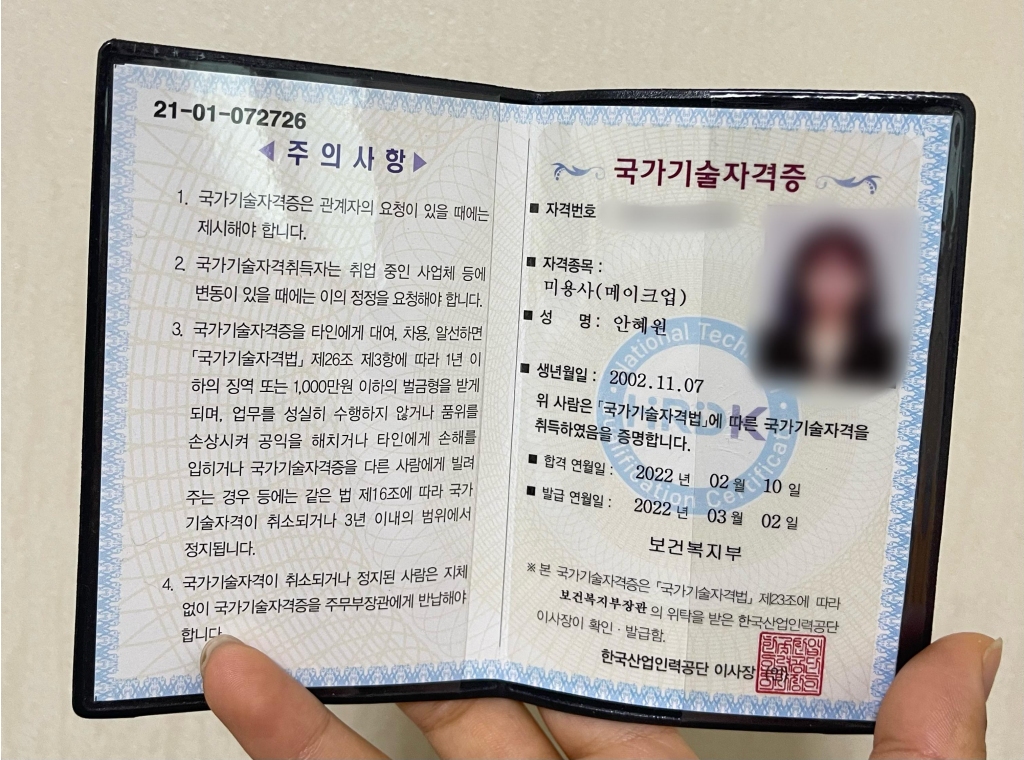 21-01-072726
◀ 주 의 사 항 ▶
1. 국가기술자격증은 관계자의 요청이 있을 때에는
제시해야 합니다.
2. 국가기술자격취득자는 취업 중인 사업체 등에
변동이 있을 때에는 이의 정정을 요청해야 합니다.
3. 국가기술자격증을 타인에게 대여, 차용, 알선하면
「국가기술자격법」 제26조 제3항에 따라 1년 이
하의 징역 또는 1,000만원 이하의 벌금형을 받게
되며, 업무를 성실히 수행하지 않거나 품위를
손상시켜 공익을 해치거나 타인에게 손해를
입히거나 국가기술자격증을 다른 사람에게 빌려
주는 경우 등에는 같은 법 제16조에 따라 국가
기술자격이 취소되거나 3년 이내의 범위에서
정지됩니다.
4. 국가기술자격이 취소되거나 정지된 사람은 지체
없이 국가기술자격증을 주무부장관에게 반납해야
합니다.
국가기술자격증
■ 자격번호
■ 자격종목 :
미용사(메이크업)
■ 성 명 : 안혜원
■ 생년월일 : 2002.11.07
위 사람은 「국가기술자격법」에 따른 국가기술자격을
취득하였음을 증명합니다.
■ 합격 연월일 : 2022 년 02 월 10 일
■ 발급 연월일 : 2022 년 03 월 02 일
보건복지부
※ 본 국가기술자격증은 「국가기술자격법」 제23조에 따라
보건복지부장관 의 위탁을 받은 한국산업인력공단
이사장이 확인 · 발급함.
한국산업인력공단 이사장
HRDK